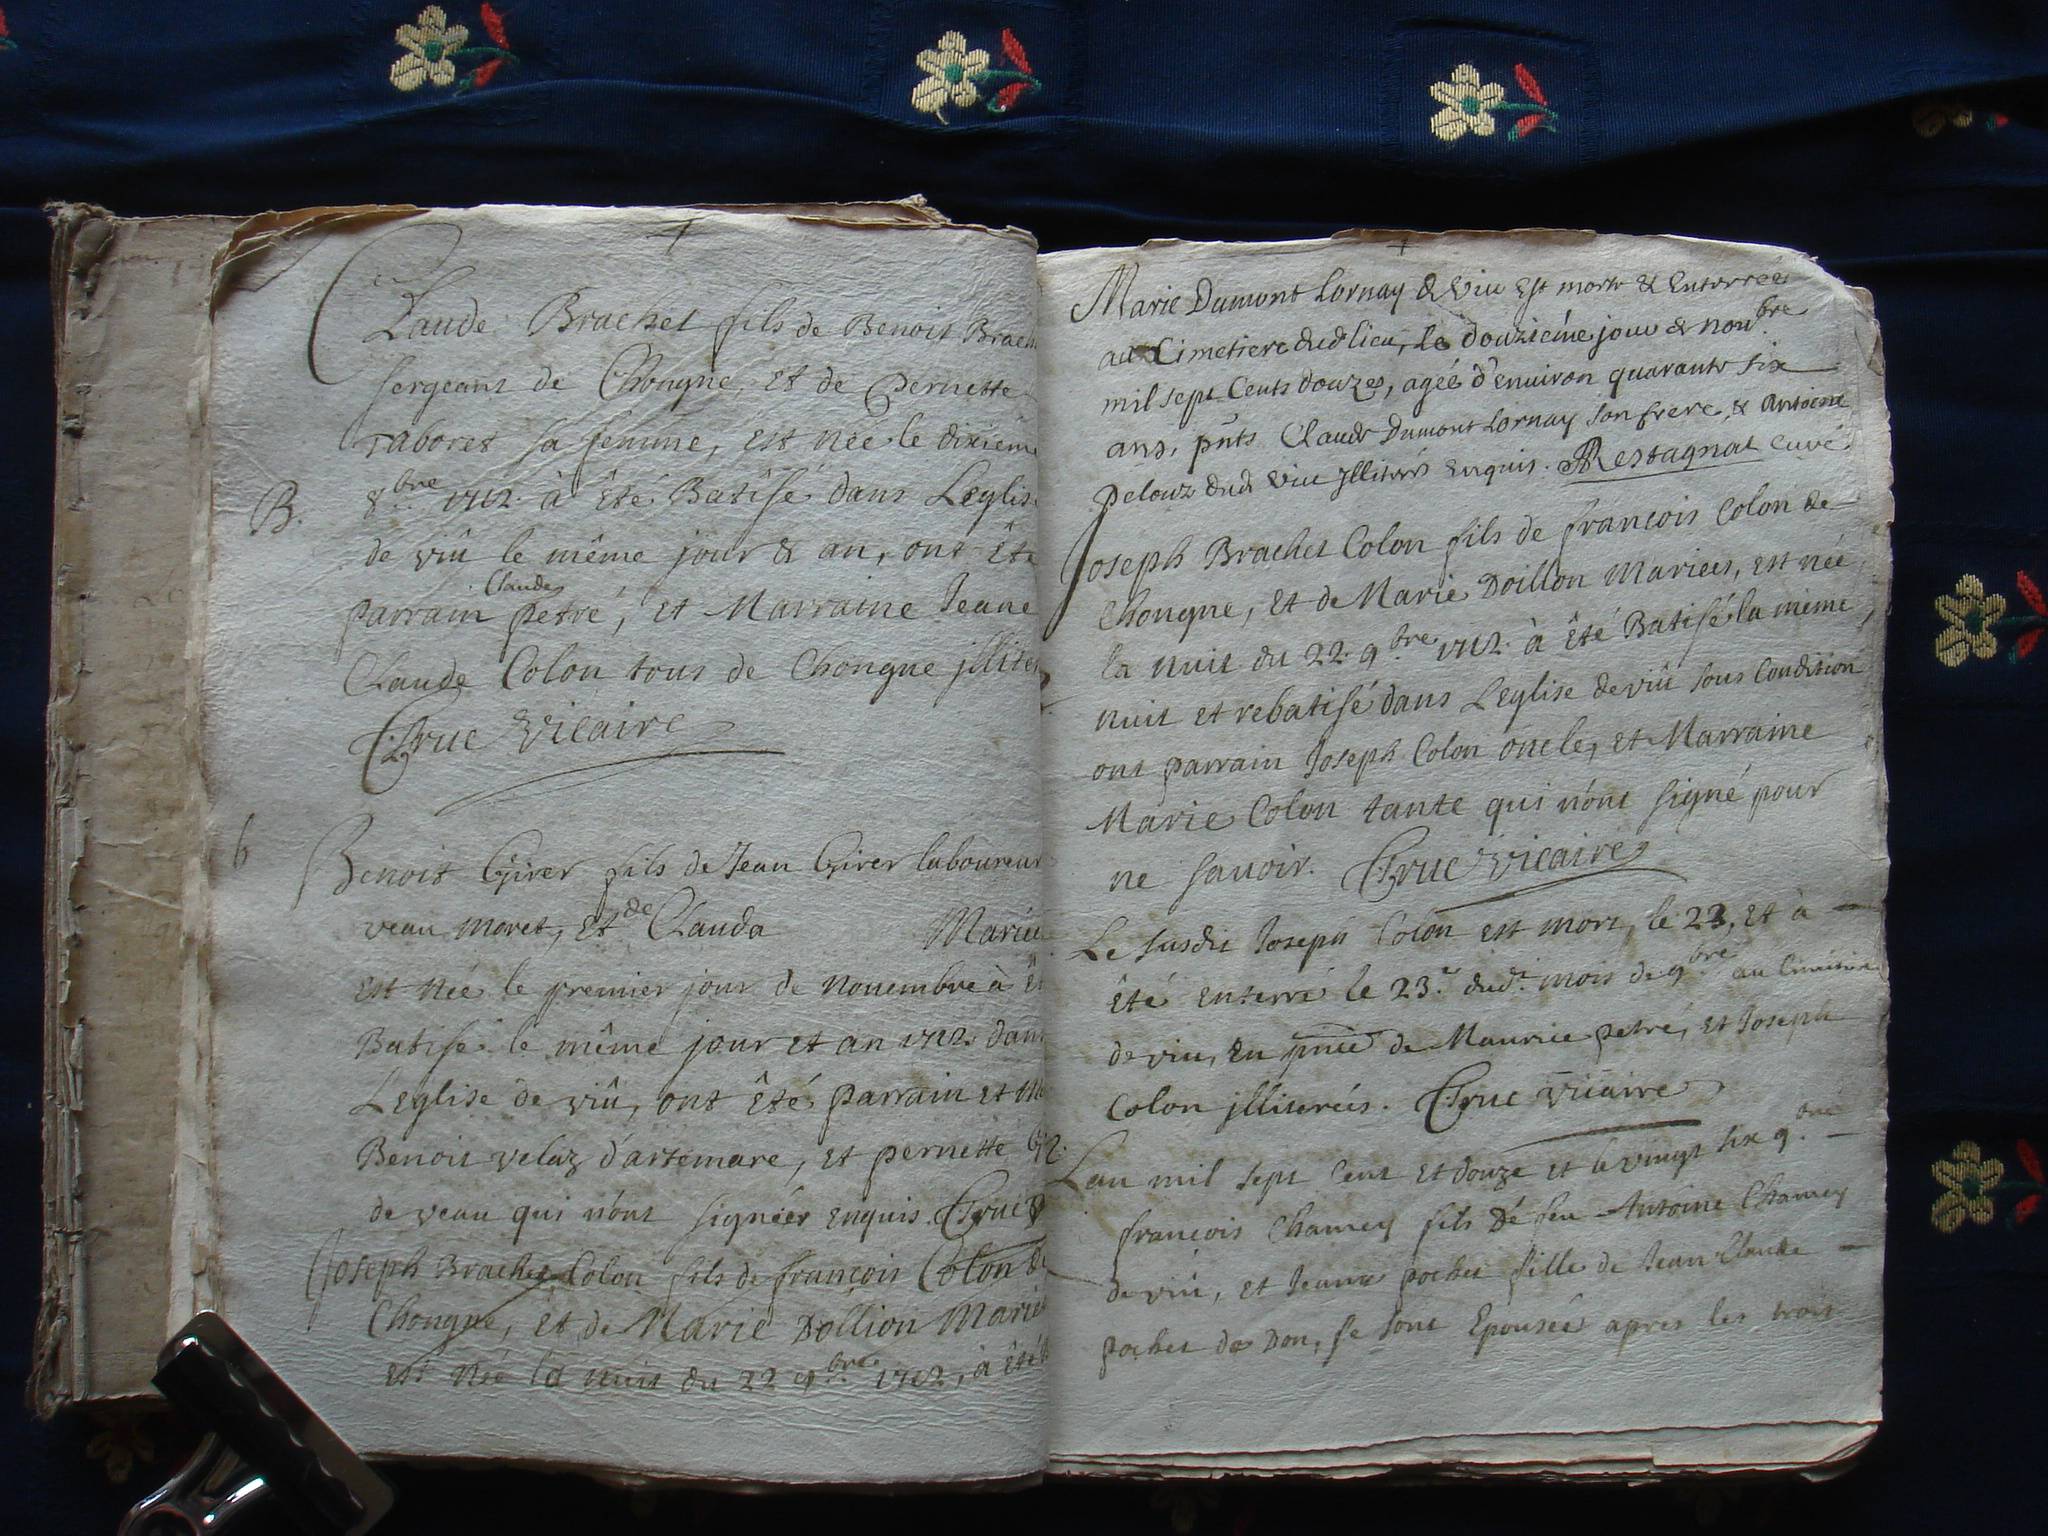 Claude Brachet fils de Benoit Brach
sergeant de Chongne, et de pernette
Taboret sa femme, est née le dixiém
B.
8.bre 1712. à êté Batisé dans Leglise
de viû le même jour & an, ont êté
Claude
parrain petré, et Marraine Jeane
Claude Colon tous de Chongne jlliter
Truc vicaire
b
Benoit Girer fils de Jean Girer laboureur
veau moret, et de Clauda Mariée
est née le premier jour de novembre à êt
Batisé le même jour et an 1712. dans
Leglise de viû, ont êté parrain et Ma
Benoit velaz d'artemare, et pernette Gi
de veau qui n'ont signéer enquis. Truc v
Joseph Brachet Colon fils de françois Colon de
Chongne, et de Marie Dollion Marié
est née la nuit du 22 9.bre 1712, à êté b
Marie Dumont Lornay de Viu Est morte & Enterrée
au Cimetiere dudt lieu, le douziéme jour de nouv.bre
mil sept Cents douzes, agée d'environ quarante six
ans, pnts Claude Dumont Lornay son frere, & Antoine
pelouz dud. Viu Jlliterés enquis. Restagnat Curé
Joseph Brachet Colon fils de françois Colon de
Chongne, et de Marie Doillon Mariees, est née
la nuit du 22. 9.bre 1712. à êté Batisé la même
nuit et rebatisé dans Leglise de viû sous Condition
ont parrain Joseph Colon oncle, et Marraine
Marie Colon tante qui n'ont signé pour
ne savoir. Truc vicaire
Le susdit Joseph Colon est mort, le 23, et à
êté enterré le 23.e dud.t mois de 9.bre au Cimitiere
de viu, en pnce de Maurice petré, et Joseph
Colon jlliterées. Truc vicaire
Lan mil sept Cent et douze et le vingt six 9.bre
françois Chamey fils de feu Antoine Chamey
de viû, et Jeane pochet fille de Jean Claude
pochet de Don, se sont Epousée apres les trois